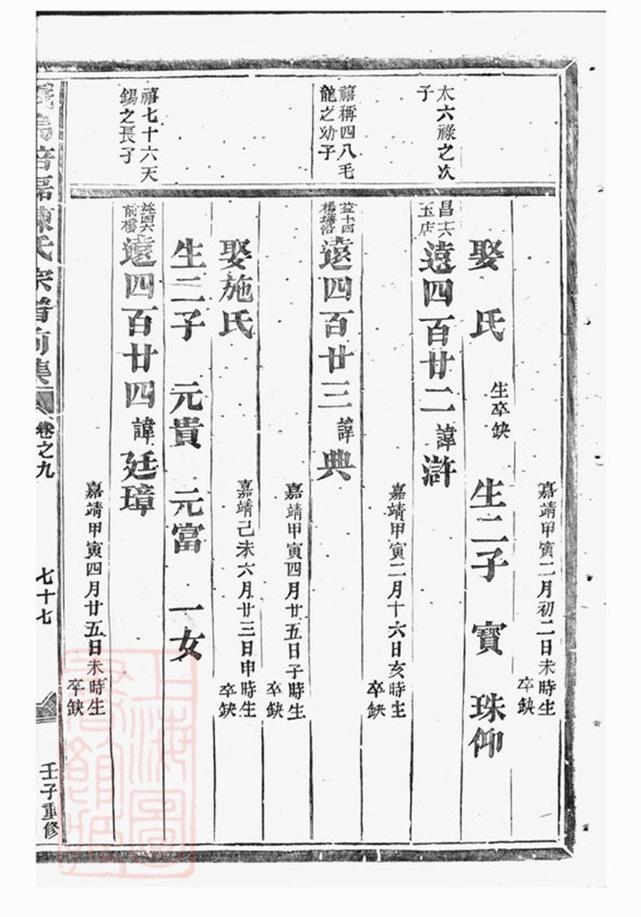 六祿之次
子
禧稱四八毛
龍之幼子
禧七十六天
錫之長子
嘉靖甲寅二月初二日未時生
卒缺
娶 氏 生卒缺 生二子 寶 珠仰
玉店
遠四百廿二 諱滸
嘉靖甲寅二月十六日亥時生
卒缺
益十四
遠四百廿三 諱典
嘉靖甲寅四月廿五日子時生
卒缺
娶施氏
嘉靖己未六月廿三日申時生
卒缺
生二子 元貴 元富 一女
前樓
遠四百廿四 諱廷璋
嘉靖甲寅四月廿五日未時生
卒缺
陳氏宗譜前集 卷之九 七十七 壬子重修
上海圖書館藏